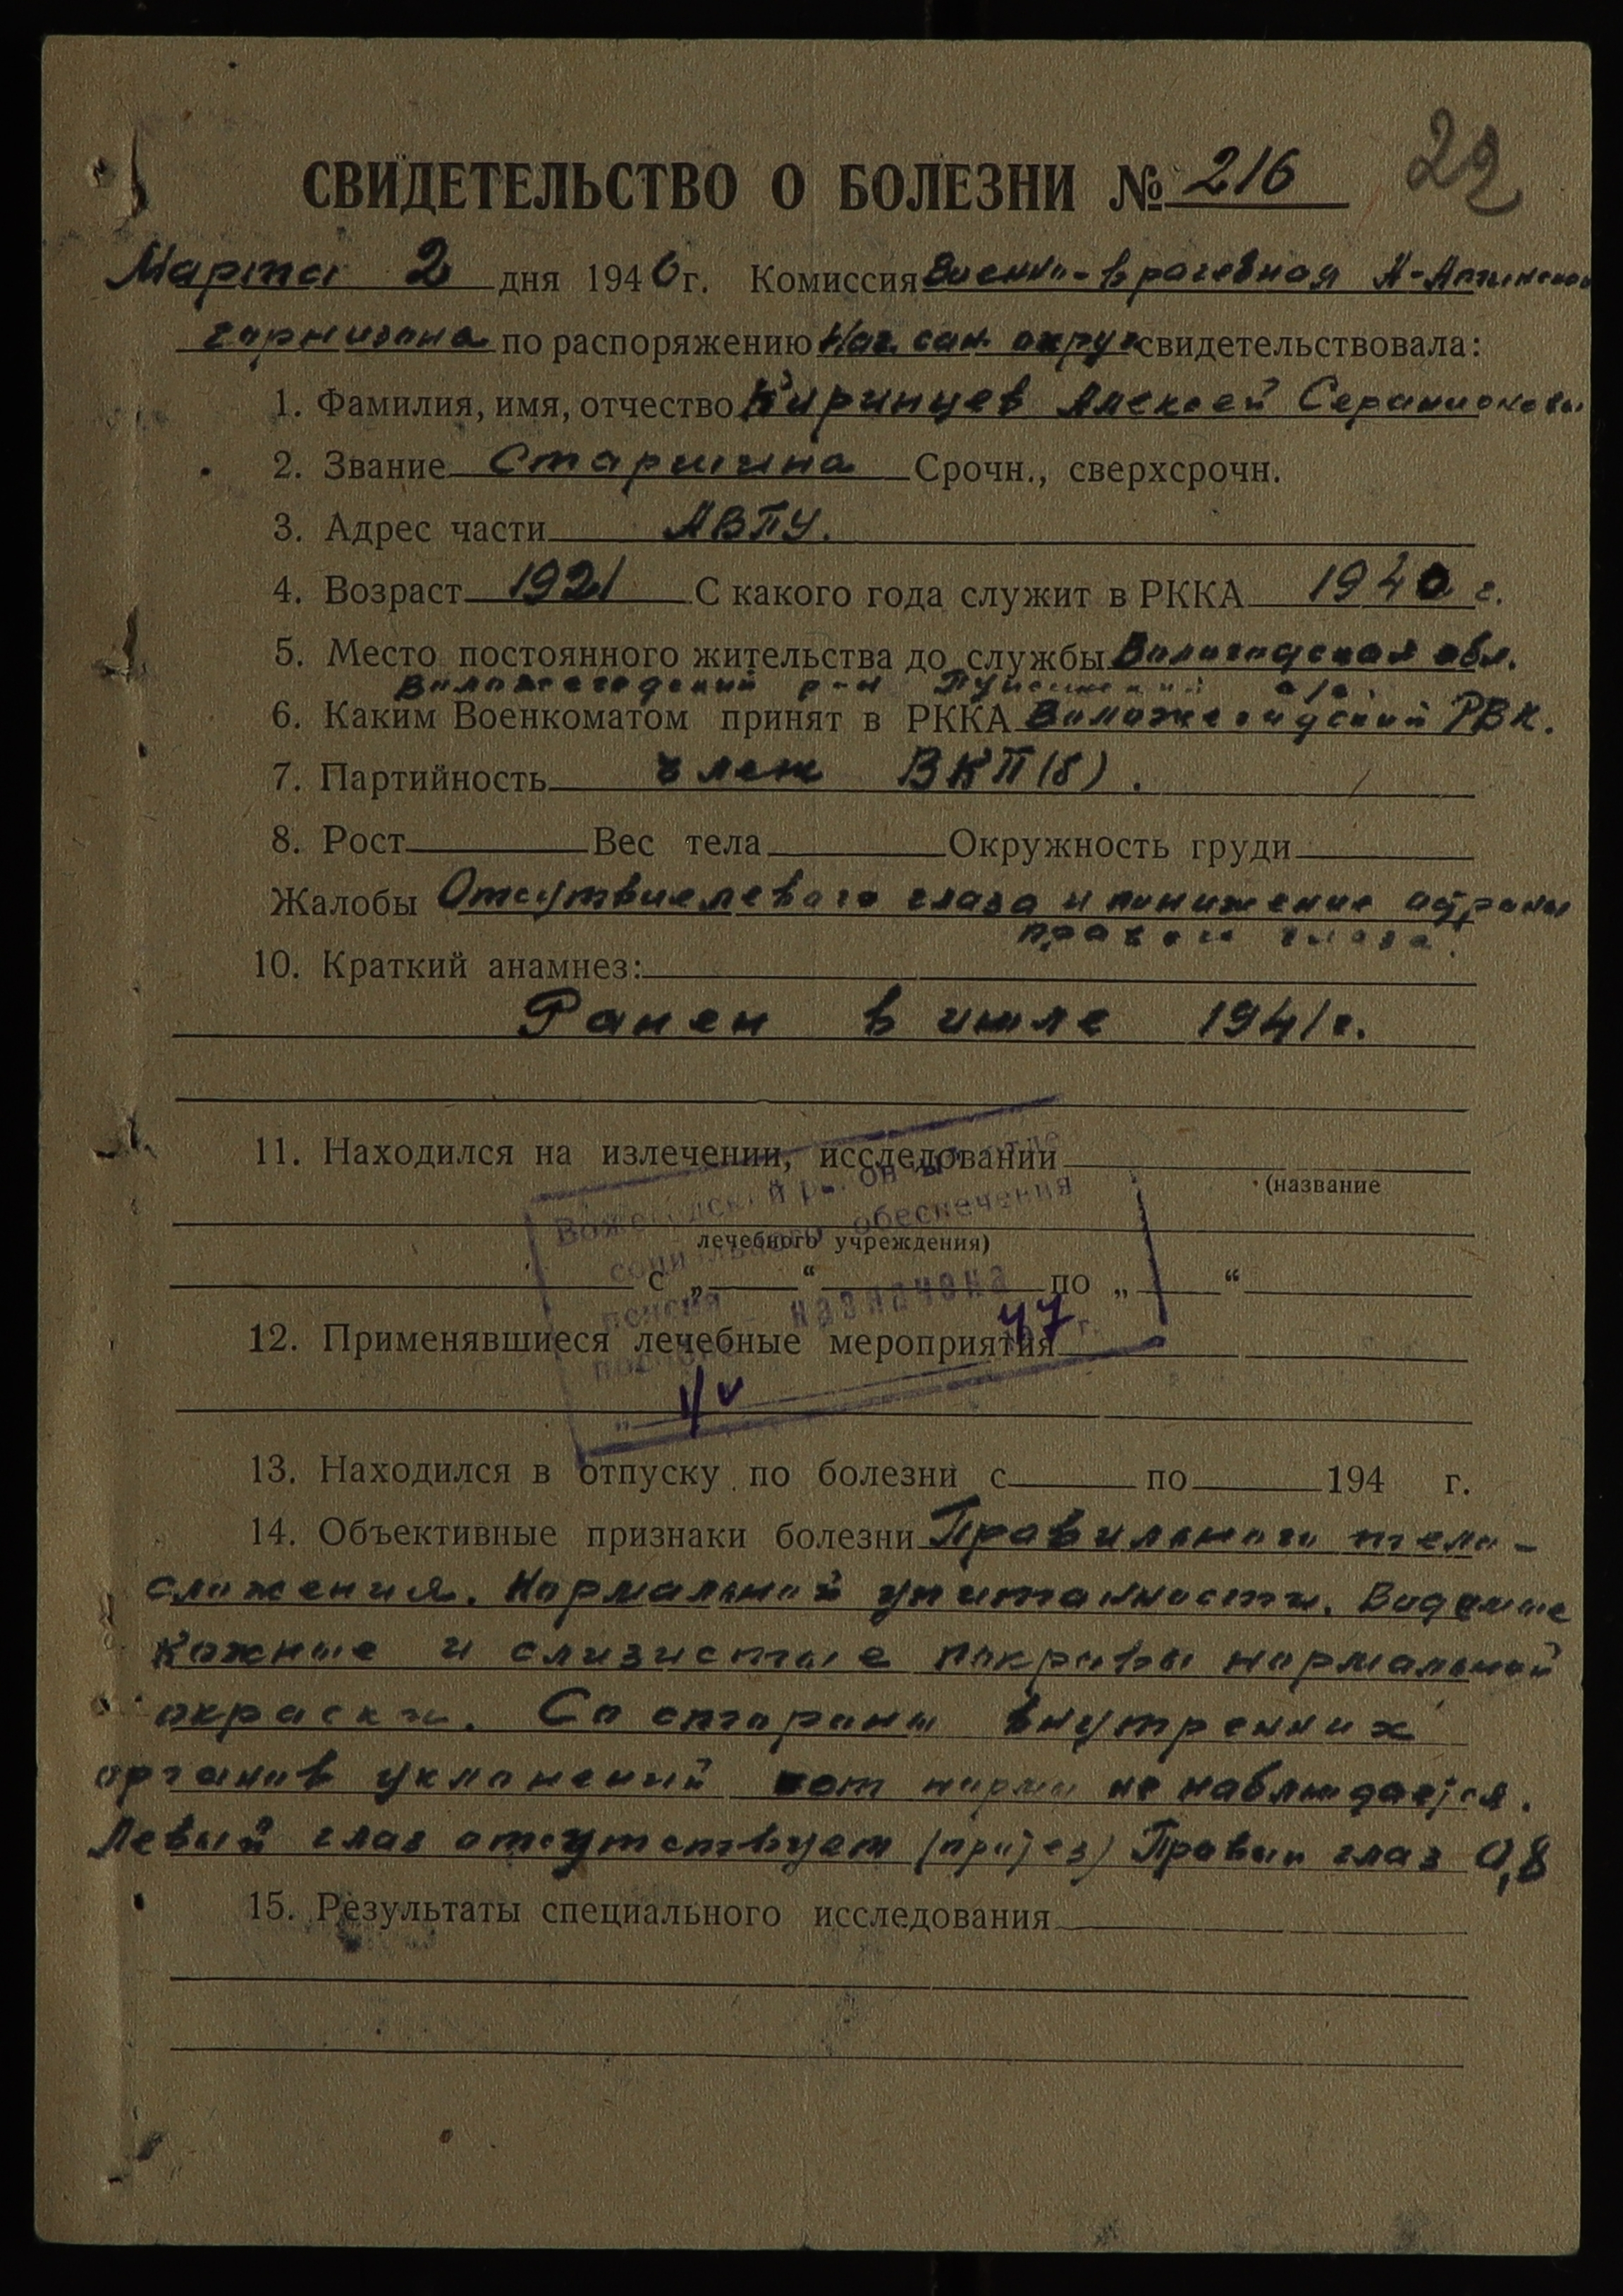 22
СВИДЕТЕЛЬСТВО О БОЛЕЗНИ № 216
Марта 2 дня 1946 г. Комиссия Военно-врачебная А-Атинского
гарнизона по распоряжению Нач. сан. округ свидетельствовала:
1. Фамилия, имя, отчество Киринцев Алексей
2. Звание Старшина Срочн., сверхсрочн.
3. Адрес части АВПУ.
4. Возраст 1921 С какого года служит в РККА 1940 г.
5. Место постоянного жительства до службы Вологодская обл.
р-н
6. Каким Военкоматом принят в РККА РВК.
7. Партийность член ВКП(б).
8. Рост Вес тела Окружность груди
Жалобы Отсутвие левого глаза и понижение остроты
правого глаза.
10. Краткий анамнез:
Ранен в июле 1941 г.
11. Находился на излечении, исследовании
(название
обеспечения
лечебного учреждения)
с „ “ по „ “
пенсия назначена
47 г.
12. Применявшиеся лечебные мероприятия
13. Находился в отпуску по болезни с по 194 г.
14. Объективные признаки болезни Правильного тело-
сложения. Нормальной упитанности. Видимые
кожные и слизистые покровы нормальной
окраски. Со стороны внутренних
органов уклонений от нормы не наблюдается.
Левый глаз отсутствует (протез) Правый глаз 0,8
15. Результаты специального исследования